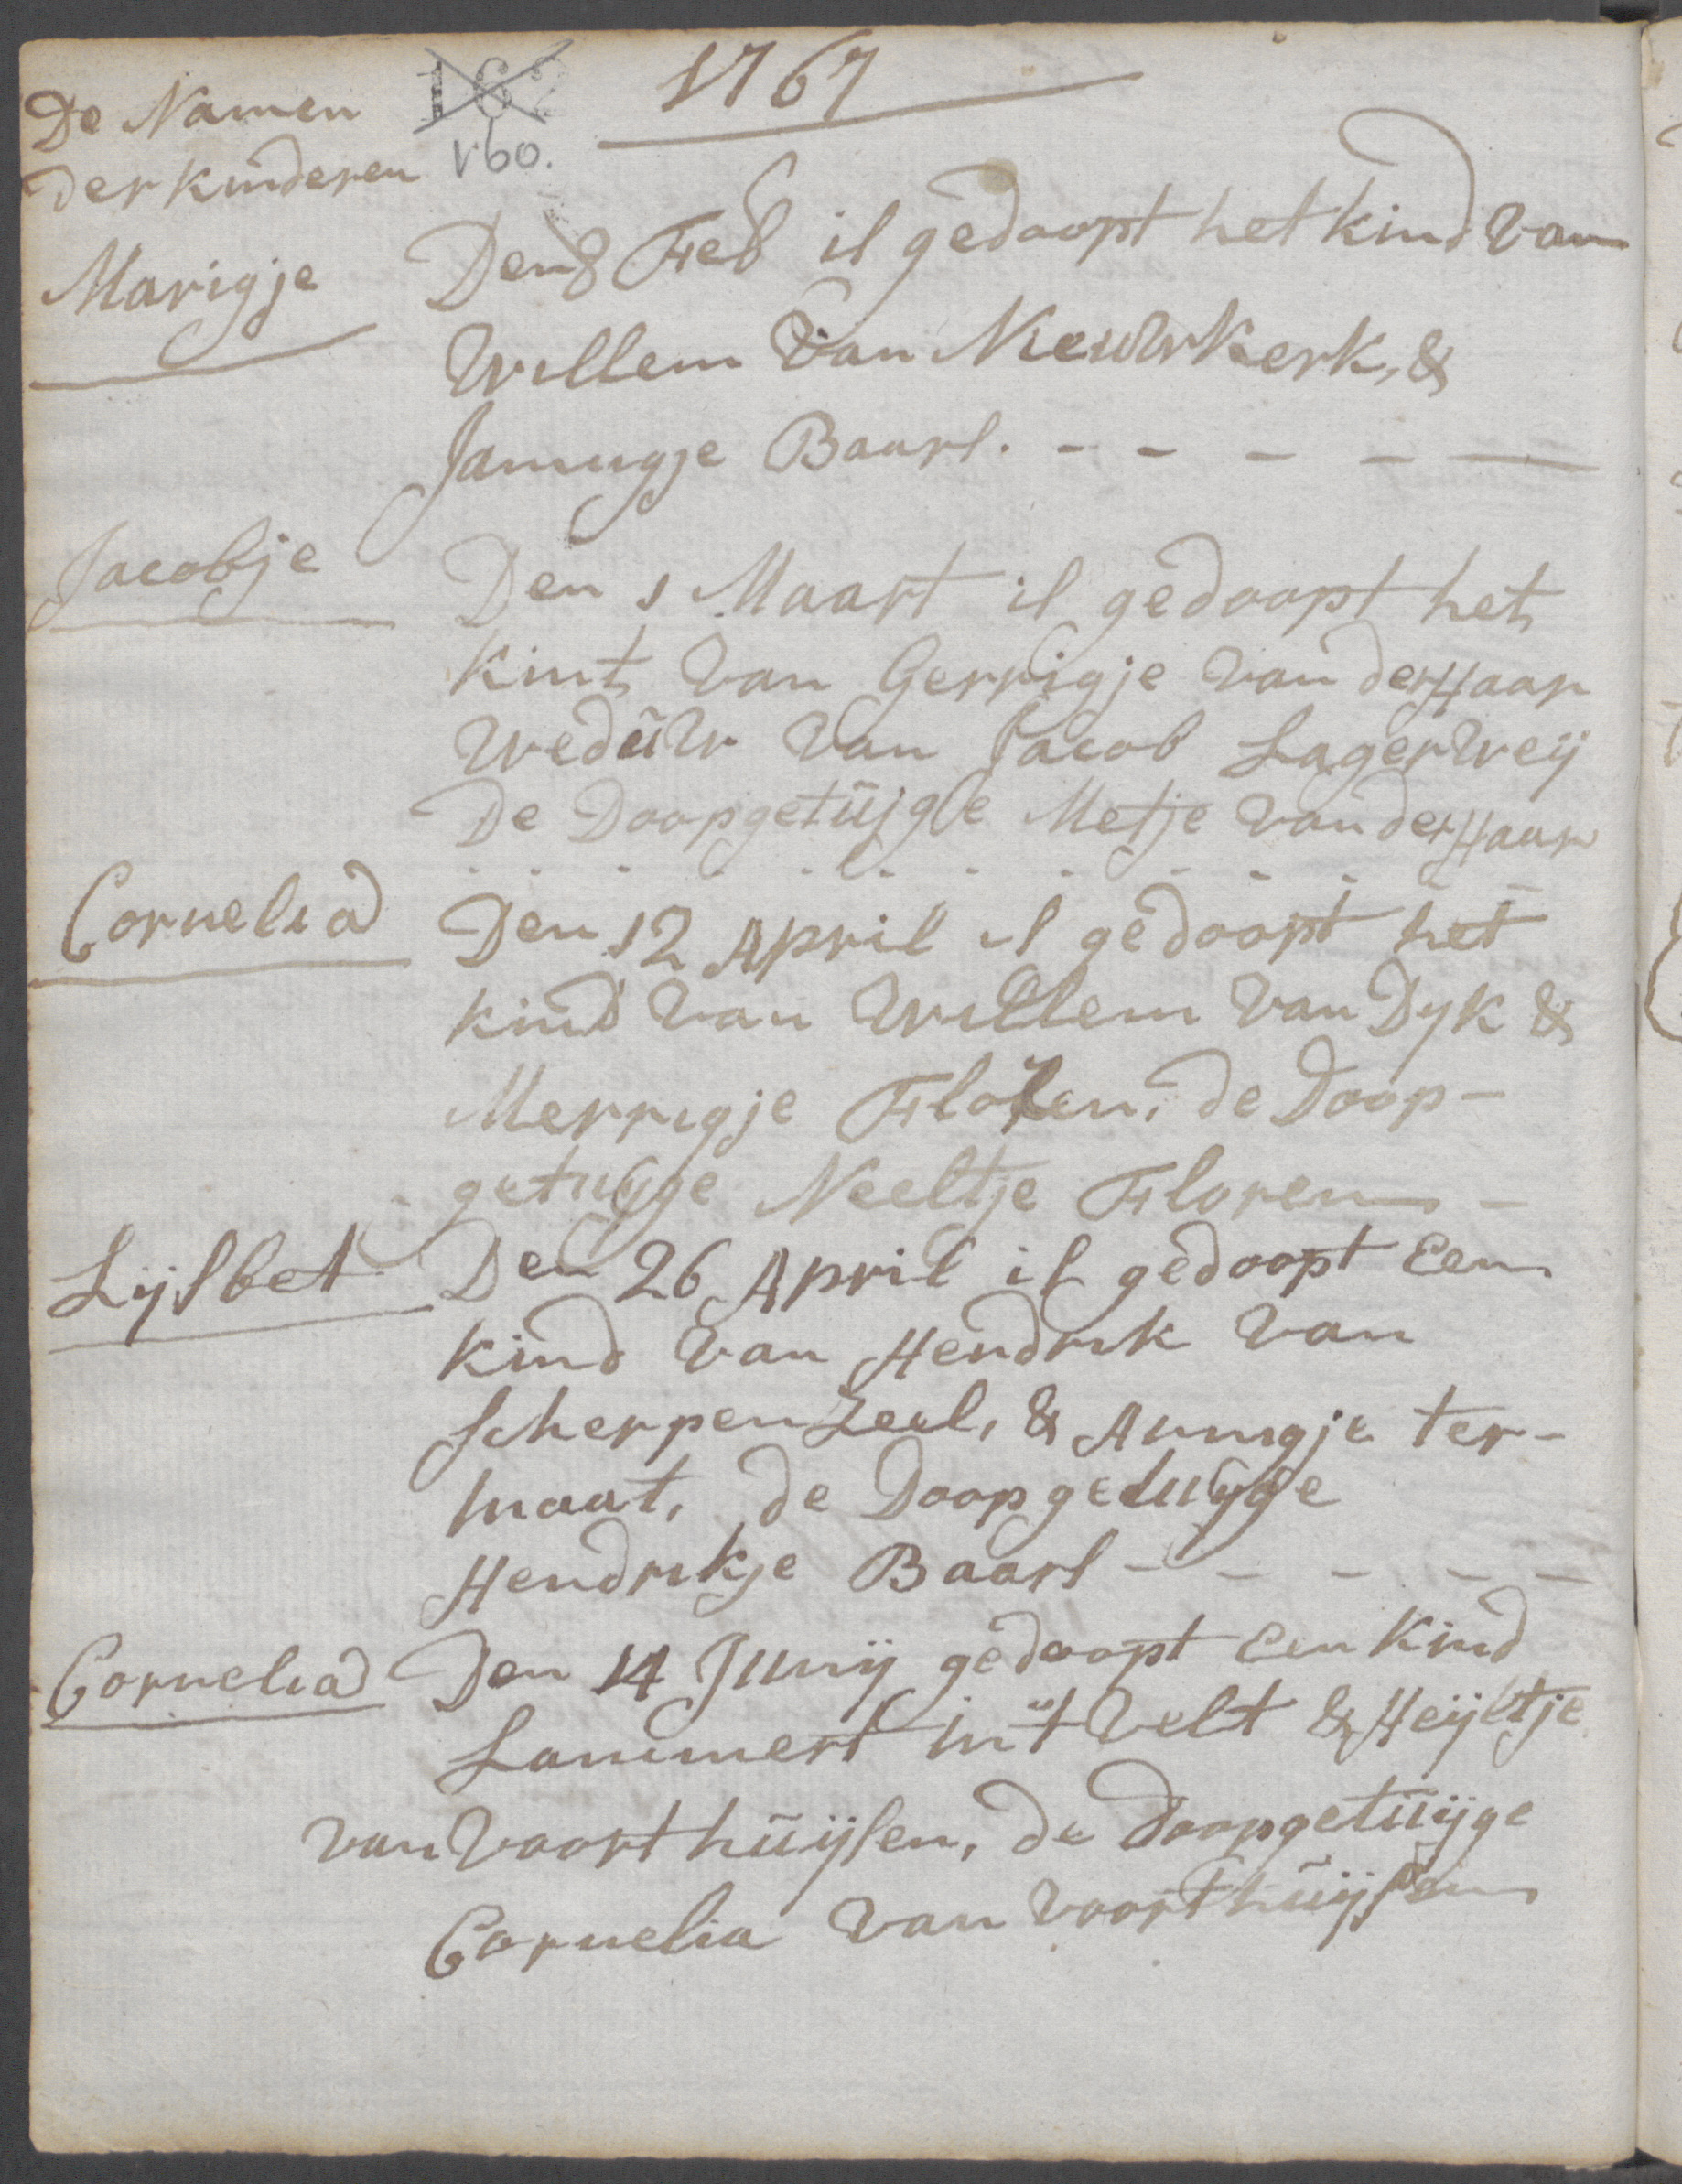 1767
162
v60.
De Namen
der kinderen
Marigje
Den 8 Feb is gedoopt het kind van
Willem van Nieuwkerk, &
Jannigje Baars. - - - - -
Jacobje
Den 1 Maart is gedoopt het
Kint van Gerrigje van der Haar
Weduw van Jacob Lagerweij
De Doopgetuijge Metje van der Haar
Cornelia
Den 12 April is gedoopt het
kind van Willem van Dyk &
Merrigje Floren, de Doop-
getuijge Neeltje Floren -
Lijsbet
Den 26 April is gedoopt Een
kind van Hendrik van
Scherpenzeel, & Annigje ter-
maat, de Doopgetuijge
Hendrikje Baars - - - - -
Cornelia
Den 14 Junij gedoopt Een Kind
Lammert in 't Velt & Heijltje
van Voorthuijsen, de Doopgetuijge
Cornelia van Voorthuijsen